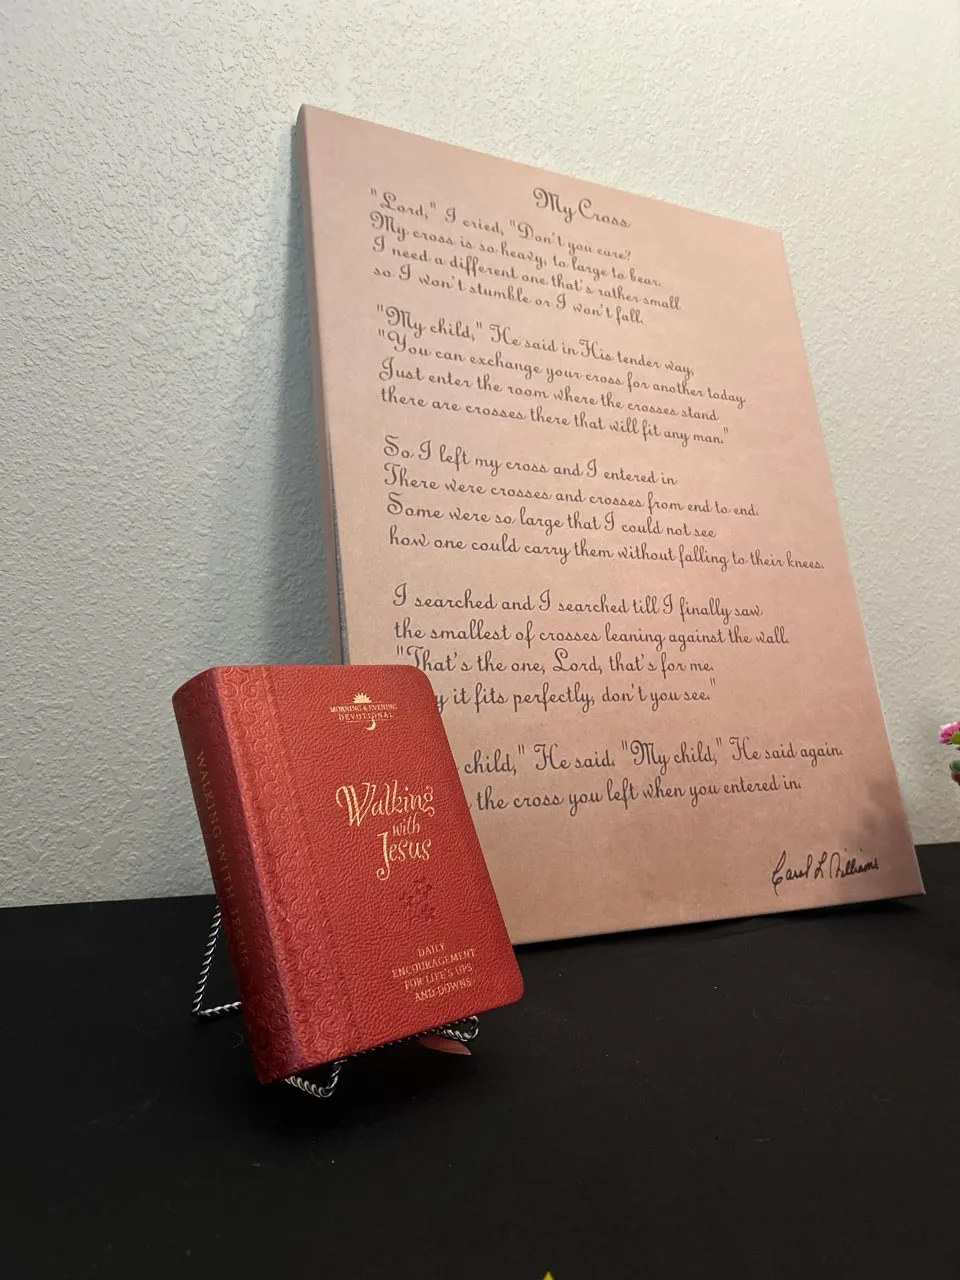 My Cross
"Lord," I cried, "Don't you care?
My cross is so heavy, to large to bear.
I need a different one that's rather small
so I won't stumble or I won't fall.
"My child," He said in His tender way,
"You can exchange your cross for another today.
Just enter the room where the crosses stand
there are crosses there that will fit any man."
So I left my cross and I entered in
There were crosses and crosses from end to end.
Some were so large that I could not see
how one could carry them without falling to their knees.
I searched and I searched till I finally saw
the smallest of crosses leaning against the wall.
"That's the one, Lord, that's for me.
it fits perfectly, don't you see."
child," He said. "My child," He said again.
the cross you left when you entered in.
Carol L Williams
MORNING & EVENING
DEVOTIONAL
Walking
with
Jesus
DAILY
ENCOURAGEMENT
FOR LIFE'S UPS
AND DOWNS
WALKING WITH JESUS